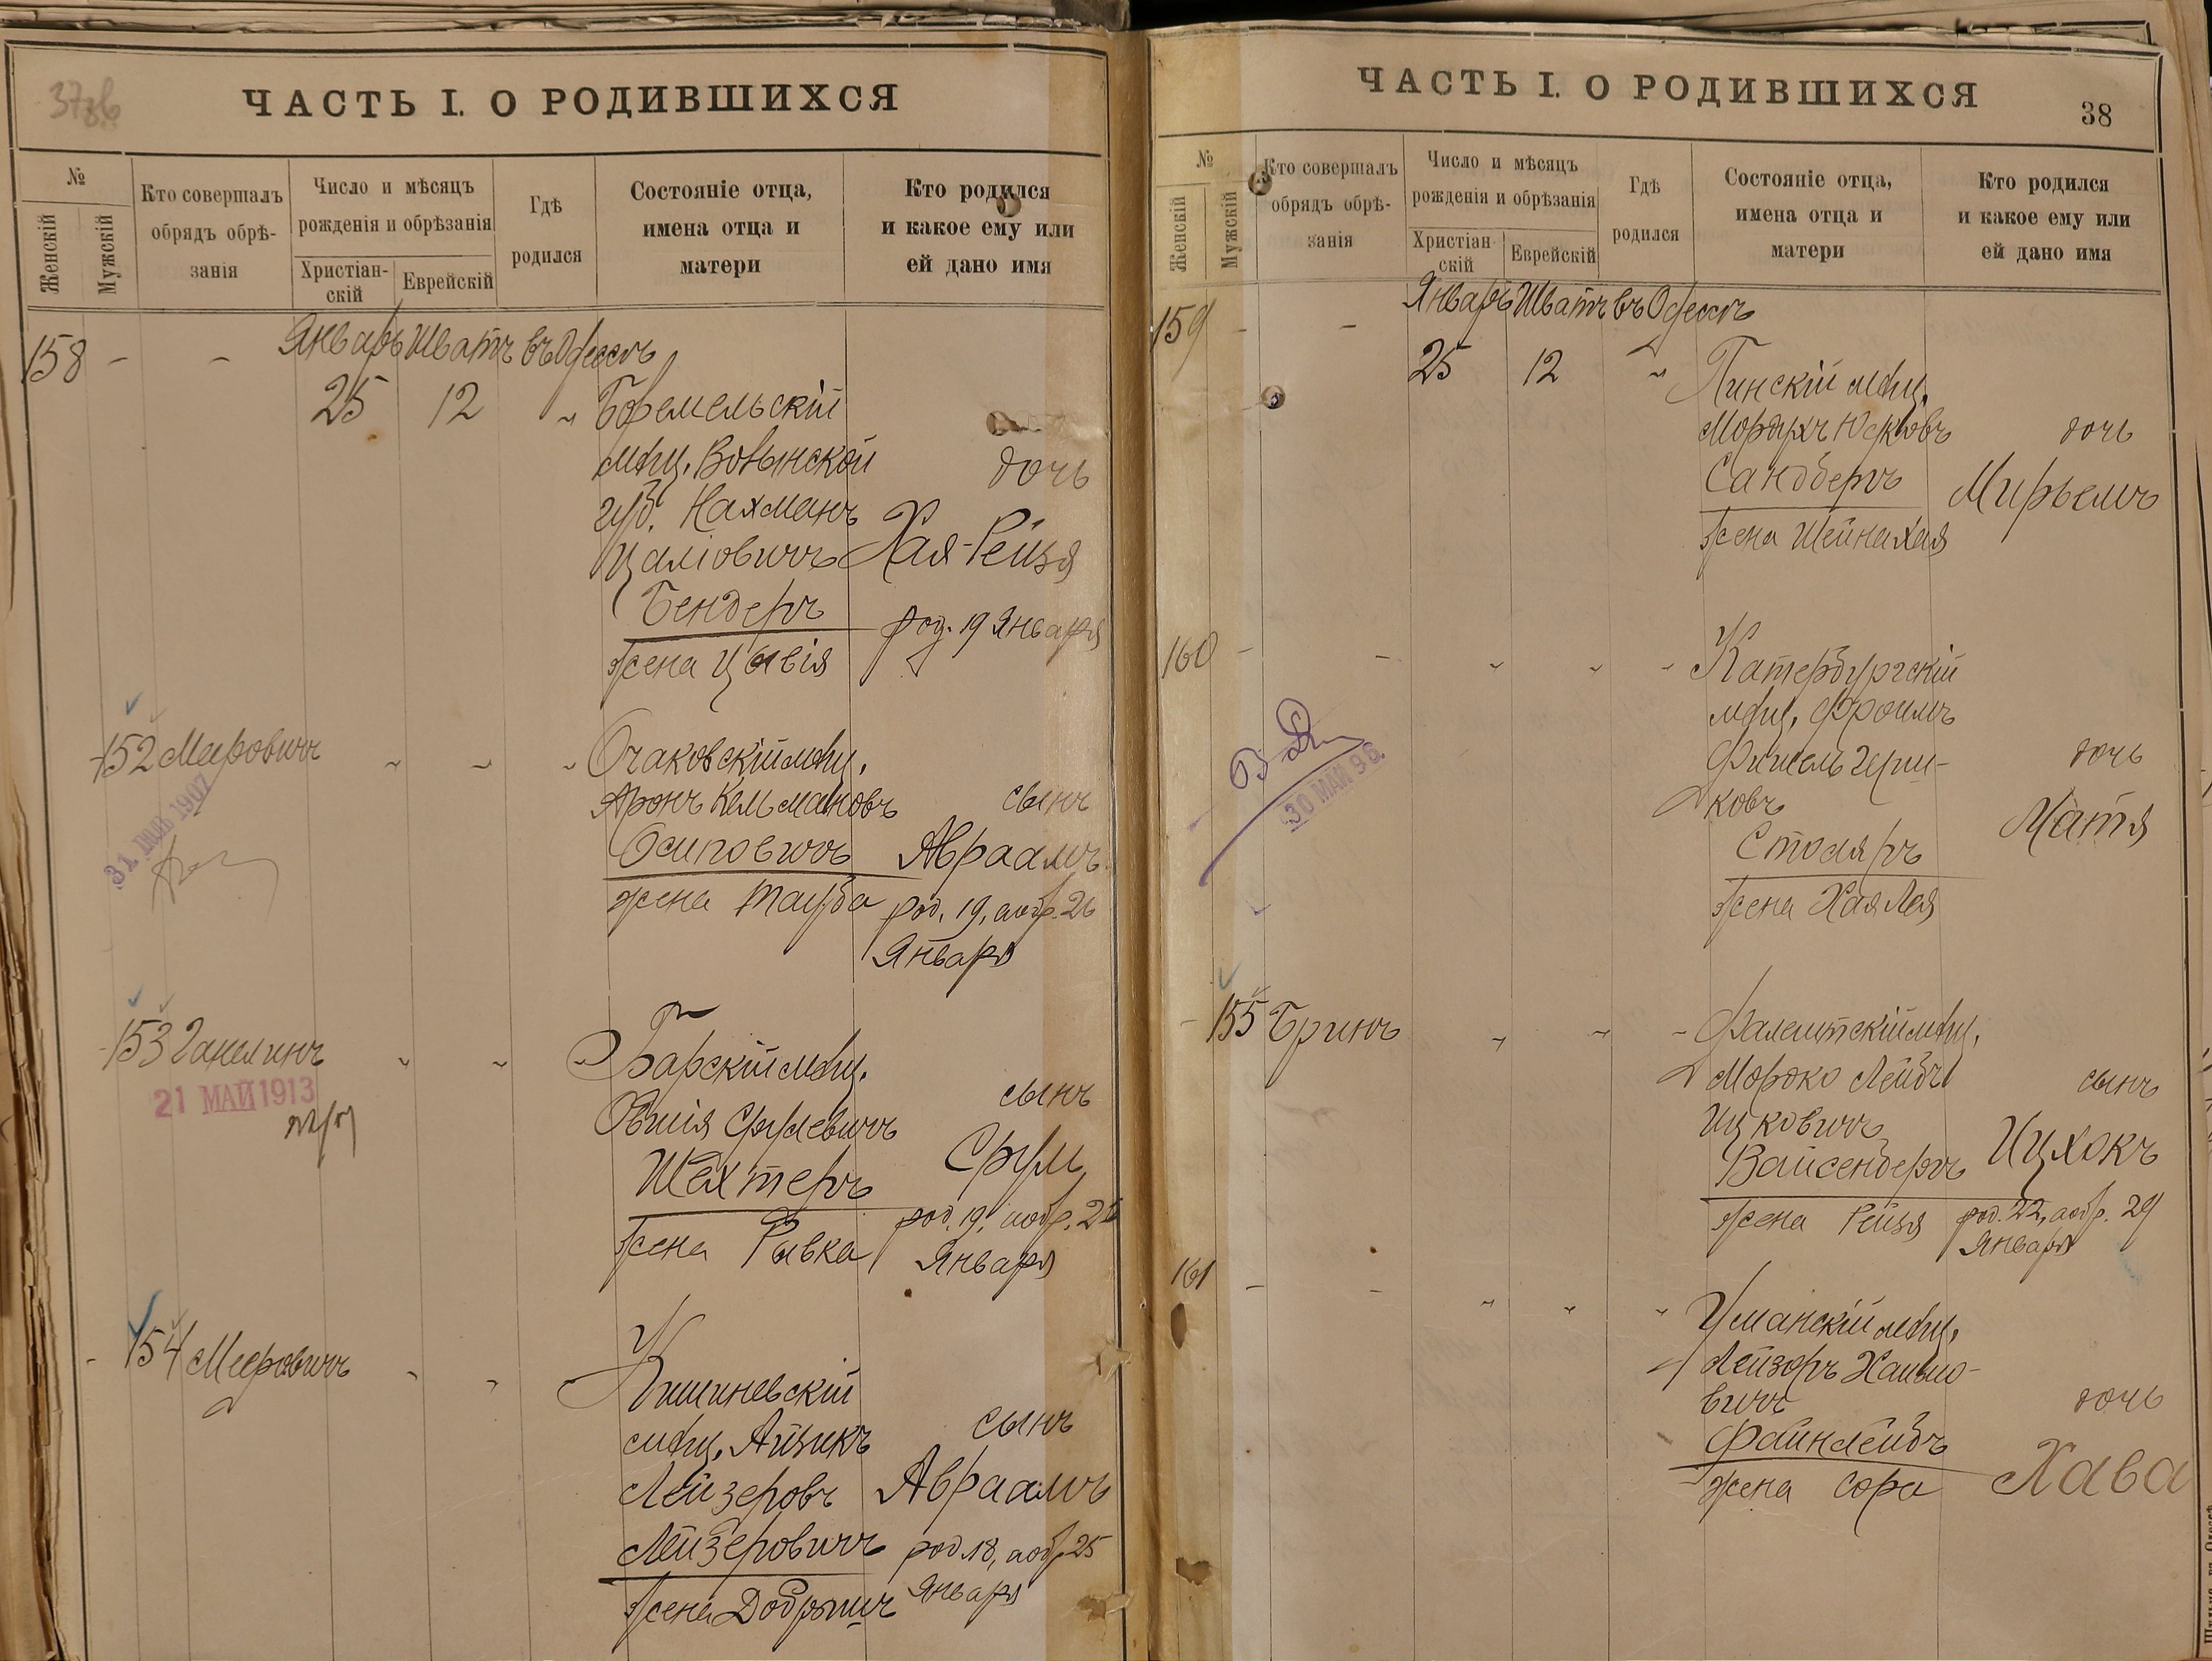 37об
ЧАСТЬ I. О РОДИВШИХСЯ
№
Женскій
Мужскій
Кто совершалъ
обрядъ обрѣ-
занія
Число и мѣсяцъ
рожденія и обрѣзанія
Христіан-
скій
Еврейскій
Гдѣ
родился
Состояніе отца,
имена отца и
матери
Кто родился
и какое ему или
ей дано имя
158 - - Январь Шватъ въ Одессѣ
25 12 " Боремельскій
мѣщ. Волынской
губ. Нахманъ
Цаліовичъ
Бендеръ
жена Цывія
дочь
Хая-Рейзя
род. 19 Января
152 Мееровичъ " " " Очаковскій мѣщ.
Аронъ Кельмановъ
Осиповичъ
жена Тауба
сынъ
Авраамъ
род. 19, а обр. 26
Января
31 1907
153 Ганелинъ " " " Барскій мѣщ.
Овшія Срулевичъ
Шехтеръ
жена Рывка
сынъ
Срул
род. 19, а обр.
Января
21 МАЙ 1913
- 154 Мееровичъ " " Кишиневскій
мѣщ. Айзикъ
Лейзеровъ
Лейзеровичъ
жена Добрышъ
сынъ
Авраамъ
род 18, а обр 25
Января
ЧАСТЬ I. О РОДИВШИХСЯ
38
№
Женскій
Мужскій
Кто совершалъ
обрядъ обрѣ-
занія
Число и мѣсяцъ
рожденія и обрѣзанія
Христіан-
скій
Еврейскій
Гдѣ
родился
Состояніе отца,
имена отца и
матери
Кто родился
и какое ему или
ей дано имя
159 - - Январь Шватъ въ Одессѣ
25 12 " Пинскій мѣщ.
Мордухъ Юсковъ
Сандберъ
жена Шейна Хая
дочь
Мирьемъ
160 - - " " " Катербургскій
мѣщ. Фроимъ
Фишель Герш-
ковъ
Столяръ
жена Хая Лея
дочь
Матя
30 МАЙ 96
- 155 Бринъ " " - Фалештскій мѣщ.
Мордко Лейбъ
Ицковичъ
Вайсендеръ
жена Рейзя
сынъ
Ицхокъ
род. 22, а обр. 29
Января
161 - - " " " Уманскій мѣщ.
Лейзоръ Хаимо-
вичъ
Файнлейбъ
жена Сора
дочь
Хава